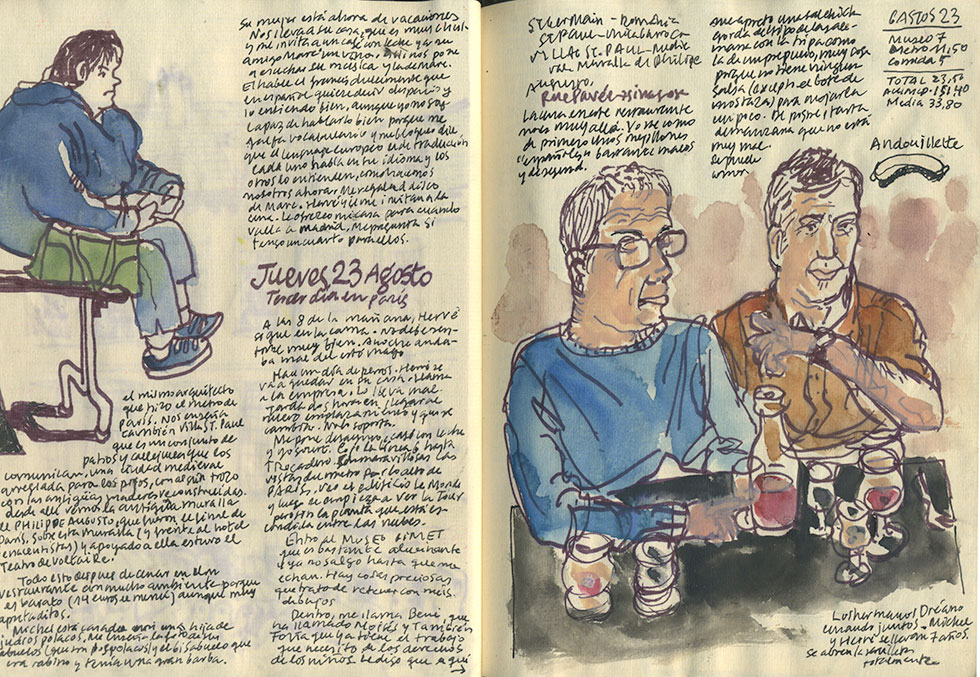 Su mujer está ahora de vacaciones
Nos lleva a su casa, que es muy chula
y me invita a un café con leche ya su
amigo Marc un vino. Allí nos pone
a escuchar su música y la de Marc.
El hablé el francés dulcemente que
en español quiere decir despacio y
lo entiendo bien, aunque yo no soy
capaz de hablarlo bien porque me
falta vocabulario y me bloqueo. dije
que el lenguaje europeo es la traducción
cada uno habla en su idioma y los
otros lo entienden, como hacemos
nosotros ahora. Me regala el disco
de Marc. Hervé y le invitan a la
cena. Le ofrezco mi casa para cuando
vaya a madrid, me pregunta si
tengo un cuarto para ellos.
Jueves 23 Agosto
Tercer día en París
A las 8 de la mañana, Hervé
sigue en la cama. No debe sen-
tirse muy bien. Anoche anda-
ba mal del estómago
Hay un día de perros. Hervé se
va a quedar en su casa. Llama
a la empresa. Lo lleva mal
tarda dos horas en llegar al
nuevo emplazamiento y quiere
cambiar. No lo soporta.
Me pone desayuno, café con leche
y yogures. Cojo la línea 6 hasta
Trocadero. Son maravillosas las
vistas du metro por lo alto de
PARIS, veo el edificio Le Monde
y luego se empieza a ver la Tour
nuestra planta que está es-
condida entre las nubes.
Entro al MUSEO GIMET
que es bastante alucinante
y ya no salgo hasta que me
echan. Hay cosas preciosas
que trato de retener con mis
dibujos
Dentro, me llama Beni, que
ha llamado Moisés y también
Toría que ya tiene el trabajo
que necesito de los derechos
de los niños. Le digo que aquí
→
el mismo arquitecto
que hizo el metro de
París. Nos enseña
también Villa St. Paul
que es un conjunto de
patios y callejuelas que los
comunican, una ciudad medieval
arreglada para los pijos, con algún trozo
con las antiguas maderas reconstruidas.
desde allí vemos la antigua muralla
de PHILIPPE AUGUSTO, que fueron el límite de
París. Sobre esta muralla (y frente al hotel
y apoyado a ella estuvo el
Teatro de Voltaire.
Todo esto después de cenar en el un
restaurante con mucho ambiente porque
es barato (14 euros el menú) aunque muy
apretaditos.
Michel está casado con una hija de
judíos polacos, me enseña la foto de sus
abuelos (que son posposos) y el bisabuelo que
era rabino y tenía una gran barba.
St Germain - Romania
St PAUL - Mil
VILLAGE St. PAUL - Medie
val Muralla de Philipe
Augusto.
Rue Pavée - sinagoga
La cena en este restaurante
no es muy allá. Yo me como
de primero unos mejillones
"española" bastante malos
y de segund.
me aprieto una salchicha
gorda del tipo de las ale-
manas con la tripa como
la de un prepucio, muy sosa
porque no tiene ninguna
salsa (excepto el bote de
mostaza) para mojarla
un poco. De postre tarta
de manzana que no está
muy mal.
Se puede
GASTOS 23
Museo 7
Metro 11,50
Comida 5
TOTAL 23,50
Media 33,80
Andouillette
Los hermanos Dréano
cenando juntos - Michel
y Hervé se llevan 7 años.
Se abren la servilleta
totalmente